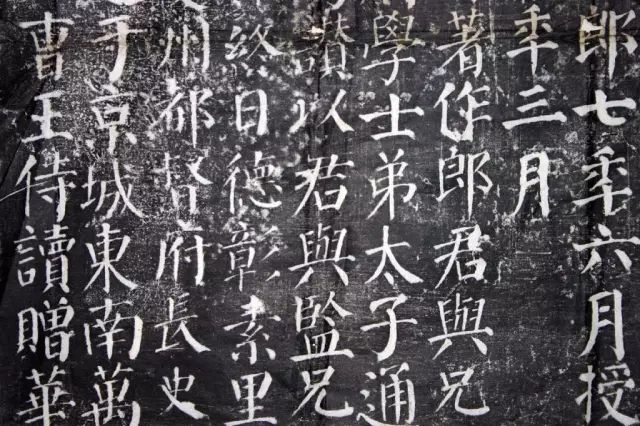 郎七秊六月授
年三月
著作郎君與兄
學士弟太子通
讚以君與監兄
終日德彰素里
州都督府長史
于京城東南萬
曹王侍讀贈華